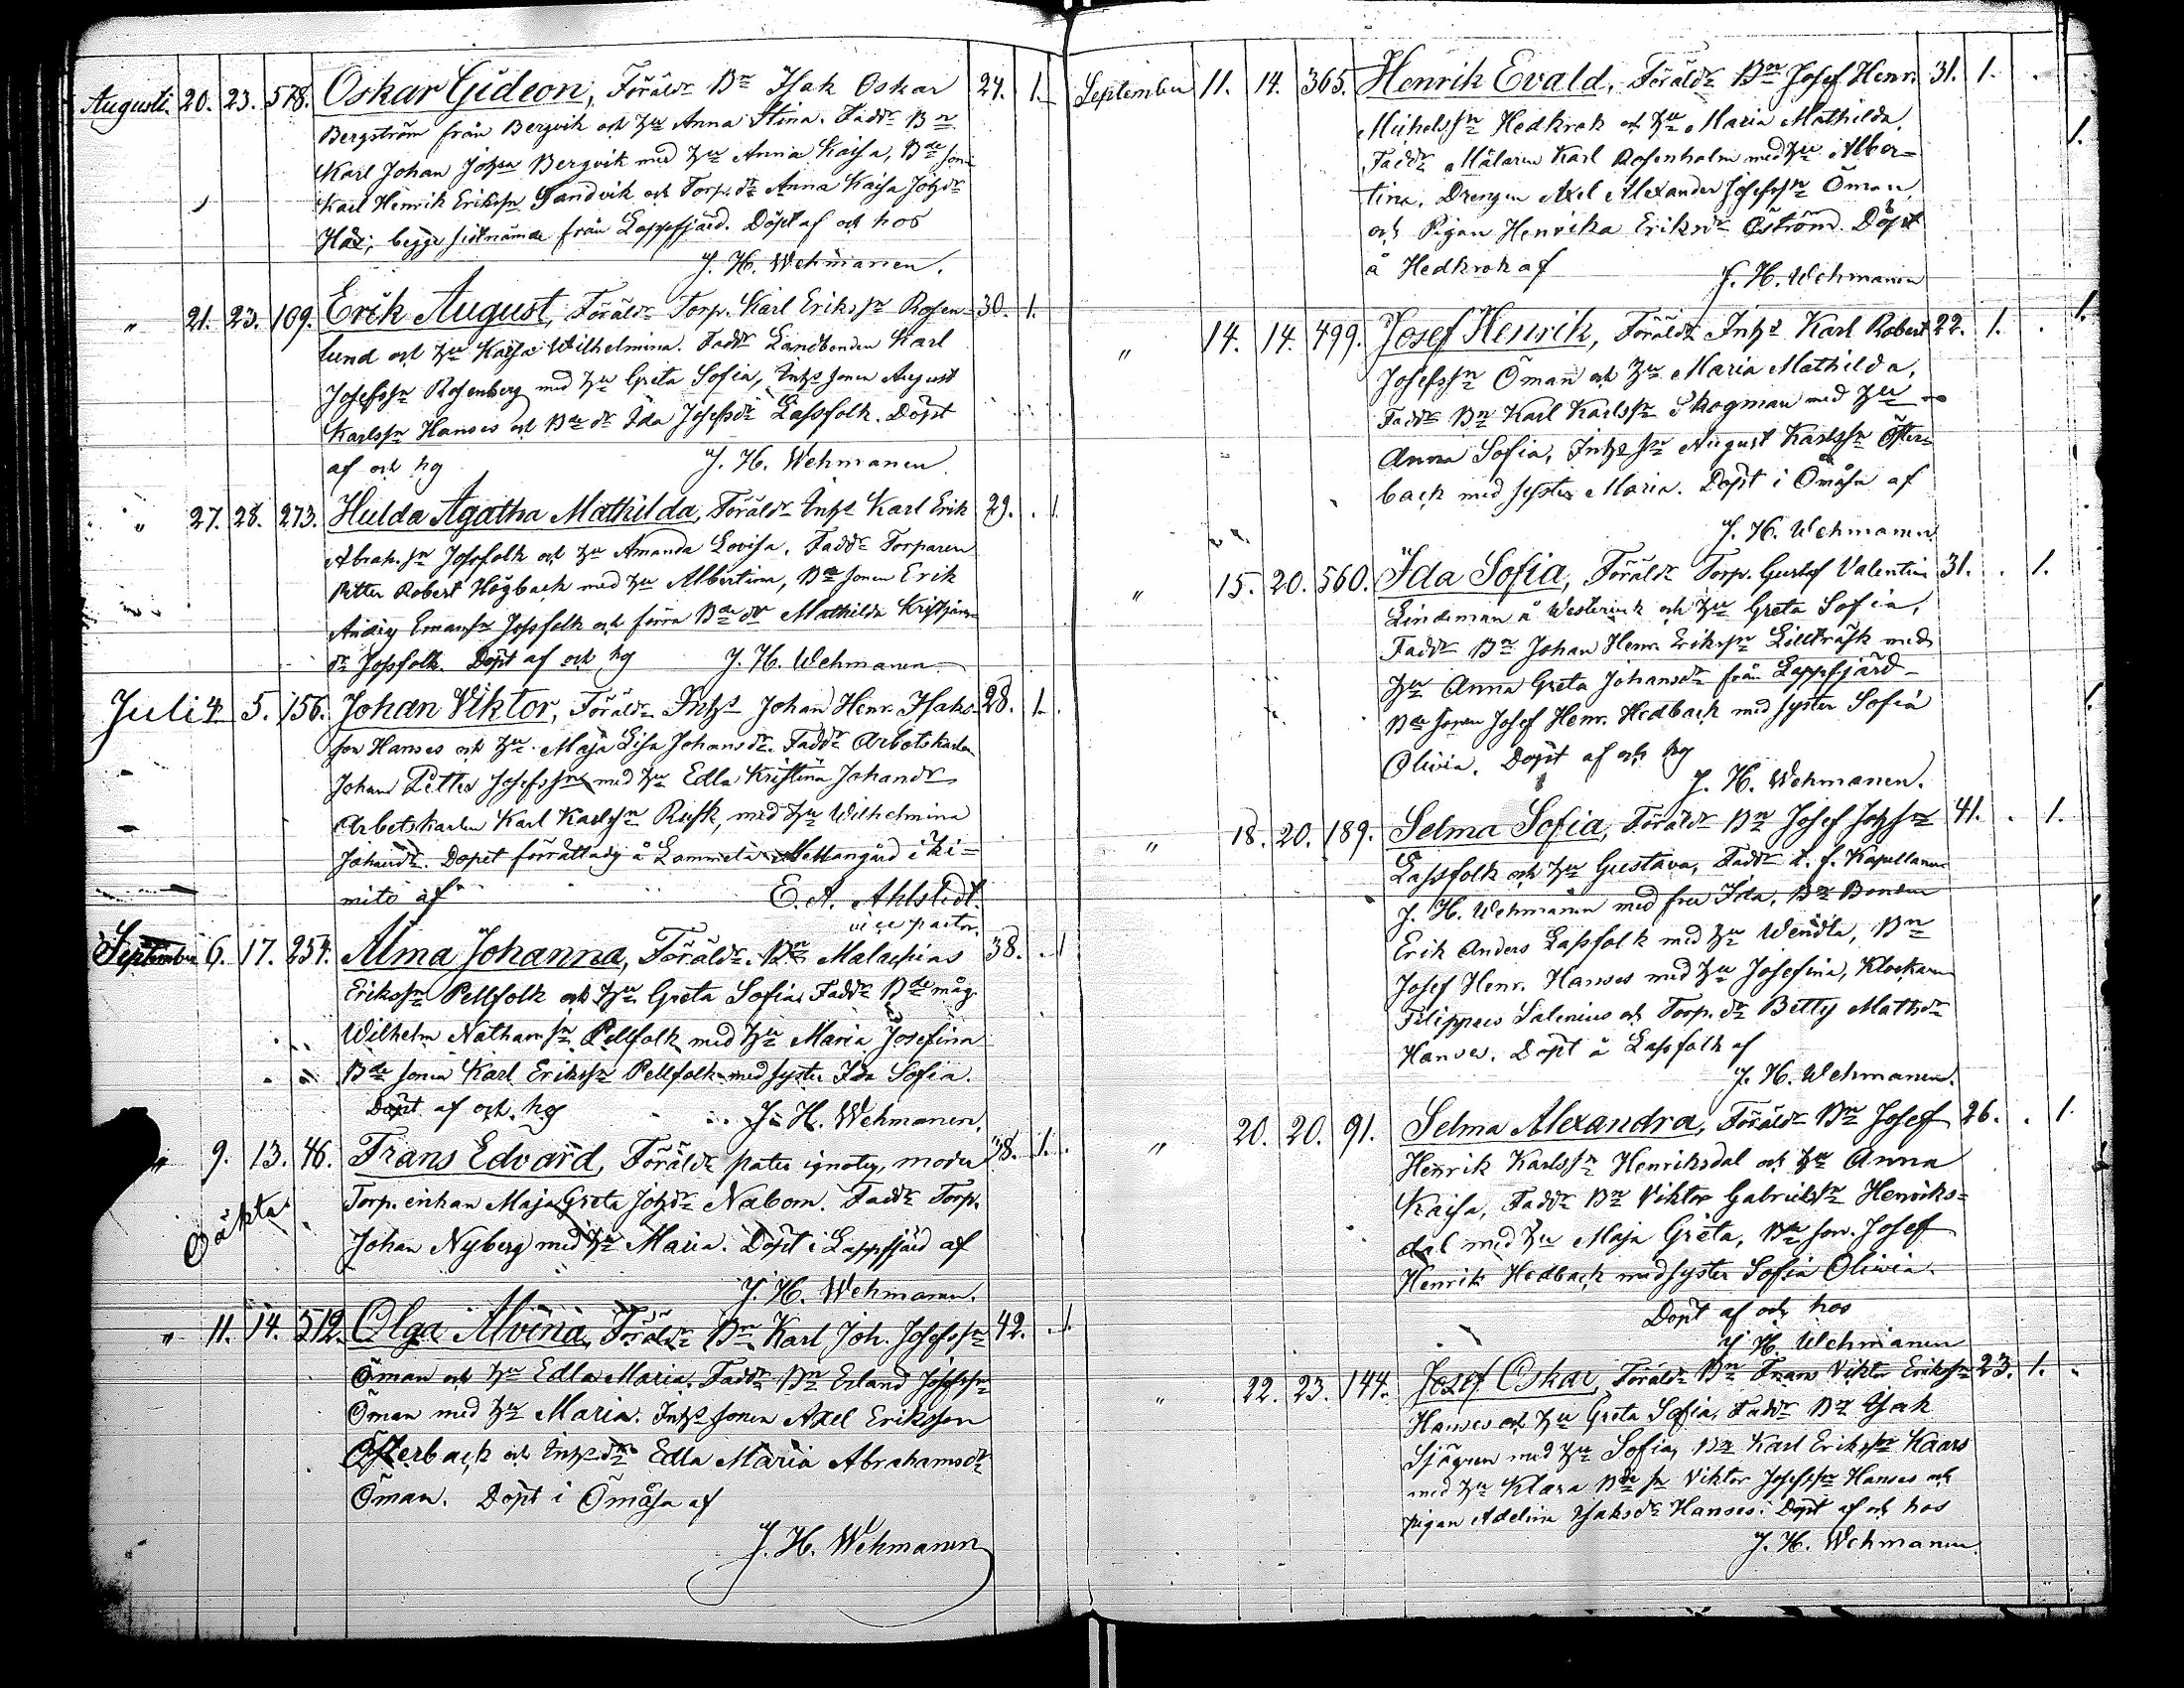 Augusti. 20. 23. 578. Oskar Gideon, Föräldr Bn Isak Oskar 24. 1.
Bergström från Bergvik och hu Anna Stina. Faddr Bn
Karl Johan Johsn Bergvik med hu Anna Kajsa, Bde sone
Karl Henrik Erikssn Sandvik och Torp. dr Anna Kajsa Johdr
begge sistnämde från Lappfjärd. Döpt af och hos
J. H. Wehmanen.
" 21. 23. 109. Erik August, Föräldr Torp. Karl Erikssn Rosen- 30. 1.
lund och hu Kajsa Wilhelmina. Faddr Landbonden Karl
Josefssn Rosenberg med hu Greta Sofia, Inhs sonen August
Karlssn Hanses och Bde dr Ida Josefsdr Lassfolk. Döpt
af och hg J. H. Wehmanen
" 27. 28. 273. Hulda Agatha Mathilda, Föräldr Inhs Karl Erik 29. . 1.
Abrah.sn Jossfolk och hu Amanda Lovisa. Faddr Torparen
Petter Robert Högback med hu Albertina, Bde sonen Erik
Emanssn Jossfolk och förra Bde dr Mathilda
dr Jossfolk. Döpt af och hg J. H. Wehmanen
Juli 4. 5. 156. Johan Viktor, Föräldr Inhs Johan Henr. Isaks- 28. 1.
son Hanses och hu Maja Lisa Johansdr. Faddr Arbetskarlen
Johan Petter Josefssn med hu Edla Kristina Johandr
Arbetskarlen Karl Karlssn Rusk, med hu Wilhelmina
Johandr. Dopet förrättadt å Lammela Mellangård i Ki-
mito af E. A. Ahlstedt.
vice pastor.
September 6. 17. 254. Alma Johanna, Föräldr. Bn Malachias 38. . 1
Erikssn Pellfolk och hu Greta Sofia. Faddr Bde måg
Wilhelm Nathanssn Pellfolk med hu Maria Josefina
Bde sonen Karl Erikssn Pellfolk med syster Ida Sofia.
Döpt af och hg J. H. Wehmanen.
" 9. 13. 46. Frans Edvard, Föräldr pater ignotus, moder 38. 1.
Oäkta. Torp. enkan Maja Greta Johdr Nabom. Faddr Torp.
Johan Nyberg med hu Maria. Döpt i Lappfjärd af
J. H. Wehmanen.
" 11. 14. 512. Olga Alvina, Föräldr Bn Karl Joh. Josefssn 42. . 1.
Öman och hu Edla Maria. Faddr Bn Erland Josefssn
Öman med hu Maria. Inhs sonen Axel Eriksson
Österback och Inhs dr Edla Maria Abrahamsdr
Öman. Döpt i Ömåsa af
J. H. Wehmanen
September 11. 14. 365. Henrik Evald, Föräldr Bn Josef Henr. 31. 1.
Michelssn Hedkrok och hu Maria Mathilda.
Faddr Målaren Karl Rosenholm med hu Alber-
tina, Drengen Axel Alexander Josefssn Öman
och Pigan Henrika Eriksdr Öström. Döpt
å Hedkrok af J. H. Wehmanen
" 14. 14. 499. Josef Henrik, Föräldr Inhs Karl Robert 22. 1.
Josefssn Öman och hu Maria Mathilda,
Faddr Bn Karl Karlssn Skogman med hu
Anna Sofia, Inhs sn August Karlssn Öster-
back med syster Maria. Döpt i Ömåsa af
J. H. Wehmanen
" 15. 20. 560. Ida Sofia, Föräldr Torp. Gustaf Valentin 31. . 1.
Lindeman å och hu Greta Sofia,
Faddr Bn Johan Henr. Erikssn Lillträsk med
hu Anna Greta Johansdr från Lappfjärd
Bde sonen Josef Henr. Hedback med syster Sofia
Olivia. Döpt af och hg
J. H. Wehmanen.
" 18. 20. 189. Selma Sofia, Föräldr Bn Josef Johssn 41. . 1.
Lassfolk och hu Gustava, Faddr t. f. Kapellanen
J. H. Wehmanen med fru Ida, Bn Bonden
Erik Anders Lassfolk med hu Wendla, Bn
Josef Henr. Hanses med hu Josefina, Klockaren
Filippus Salenius och Torp. dr Betty Mathsdr
Hanses. Döpt å Lassfolk af
J. H. Wehmanen.
" 20. 20. 91. Selma Alexandra, Föräldr Bn Josef 26. . 1.
Henrik Karlssn Henriksdal och hu Anna
Kajsa, Faddr Bn Viktor Gabrielssn Henriks-
dal med hu Maja Greta, Bde son. Josef
Henrik Hedback med syster Sofia Olivia.
Döpt af och hos
J. H. Wehmanen
" 22. 23. 144. Josef Oskar, Föräldr Bn Frans Viktor Erikssn 23. 1.
Hanses och hu Greta Sofia, Faddr Bn Isak
Sjögren med hu Sofia, Bn Karl Erikssn Kaars
med hu Klara Bde sn Viktor Josefssn Hanses och
pigan Adelina Isaksdr Hanses. Döpt af och hos
J. H. Wehmanen.